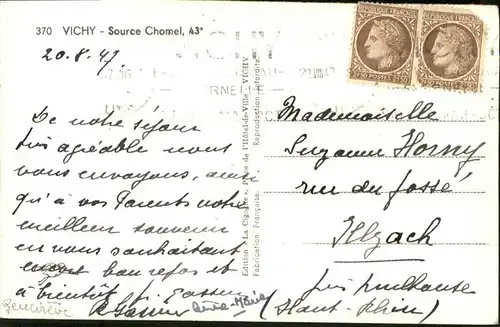 370 VICHY - Source Chomel, 43°
20.8.47
22 VIII 47
REPUBLIQUE FRANÇAISE
REPUBLIQUE FRANÇAISE
POSTES
POSTES
De notre séjour
très agréable nous
vous envoyons, ainsi
qu'à vos Parents notre
meilleur souvenir
en vous souhaitant
encore bon repos et
à bientôt
Geneviève
Anne-Marie
Edition « La Cigogne », Place de l'Hôtel-de-Ville - VICHY
Fabrication Française. Reproduction interdite
Mademoiselle
Suzanne Horny
rue du fossé
Illzach
près Mulhouse
(Haut-Rhin)